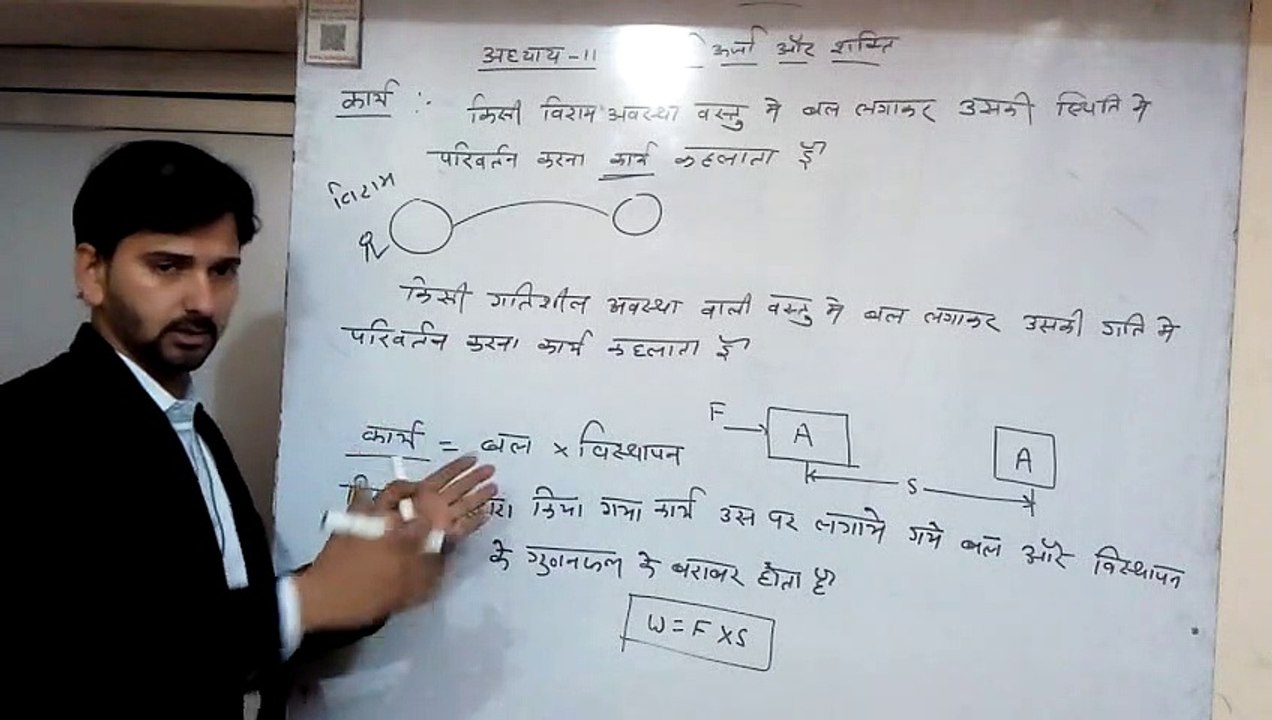 अध्याय-11 ऊर्जा और शक्ति
कार्य :- किसी विराम अवस्था वस्तु मे बल लगाकर उसकी स्थिति मे
परिवर्तन करना कार्य कहलाता है
विराम
किसी गतिशील अवस्था वाली वस्तु मे बल लगाकर उसकी गति मे
परिवर्तन करना कार्य कहलाता है
F A A
S
कार्य = बल × विस्थापन
किया गया कार्य उस पर लगाये गये बल और विस्थापन
के गुणनफल के बराबर होता है
W = F × S